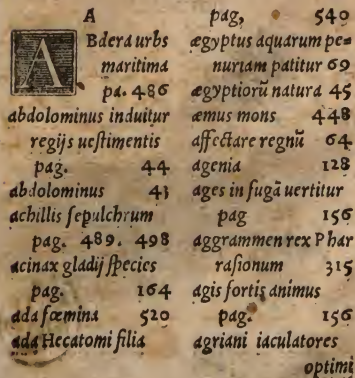 A
ABdera urbs
maritima
pa. 486
abdolominus induitur
regijs uestimentis
pag. 44
abdolominus 43
achillis sepulchrum
pag. 489. 498
acinax gladij species
pag. 164
ada fœmina 520
ada Hecatomi filia
pag, 540
ægyptus aquarum pe=
nuriam patitur 69
ægyptiorũ natura 45
æmus mons 448
affectare regnũ 64
agenia 128
ages in fugã uertitur
pag 156
aggrammen rex Phar
rasionum 315
agis fortis animus
pag. 156
agriani iaculatores
optimi